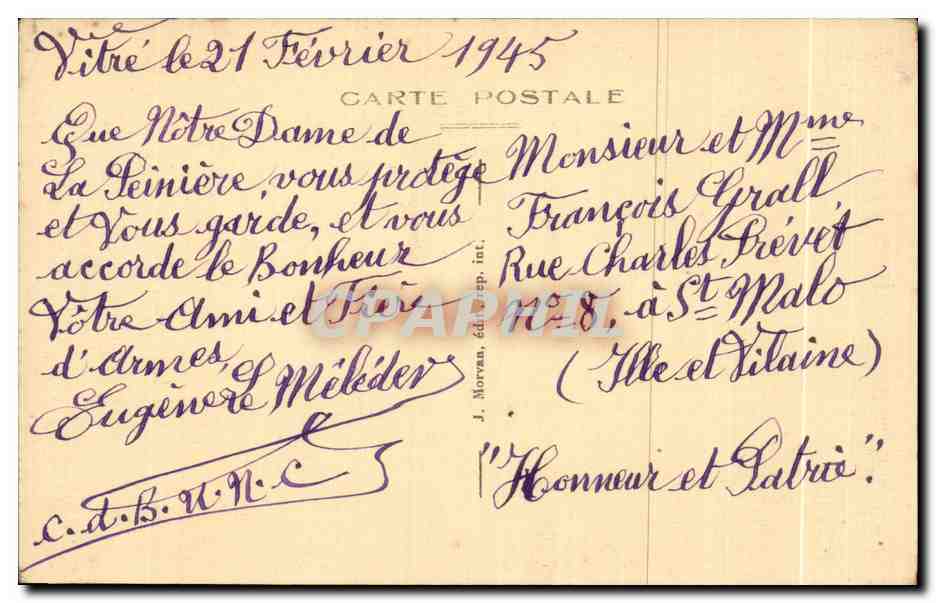 Vitré le 21 Février 1945
CARTE POSTALE
Que Nôtre Dame de
La Peinière, vous protège
et Vous garde, et vous
accorde le Bonheur
Vôtre Ami et Frère
d'Armes,
Eugène Le Méléder
C. d. B. U. N. C
J. Morvan, édit., rep. int.
Monsieur et Mme
François Grall,
Rue Charles Prévet
No 8, à St Malo
(Ille et Vilaine)
"Honneur et Patrie".
CPAPHIL